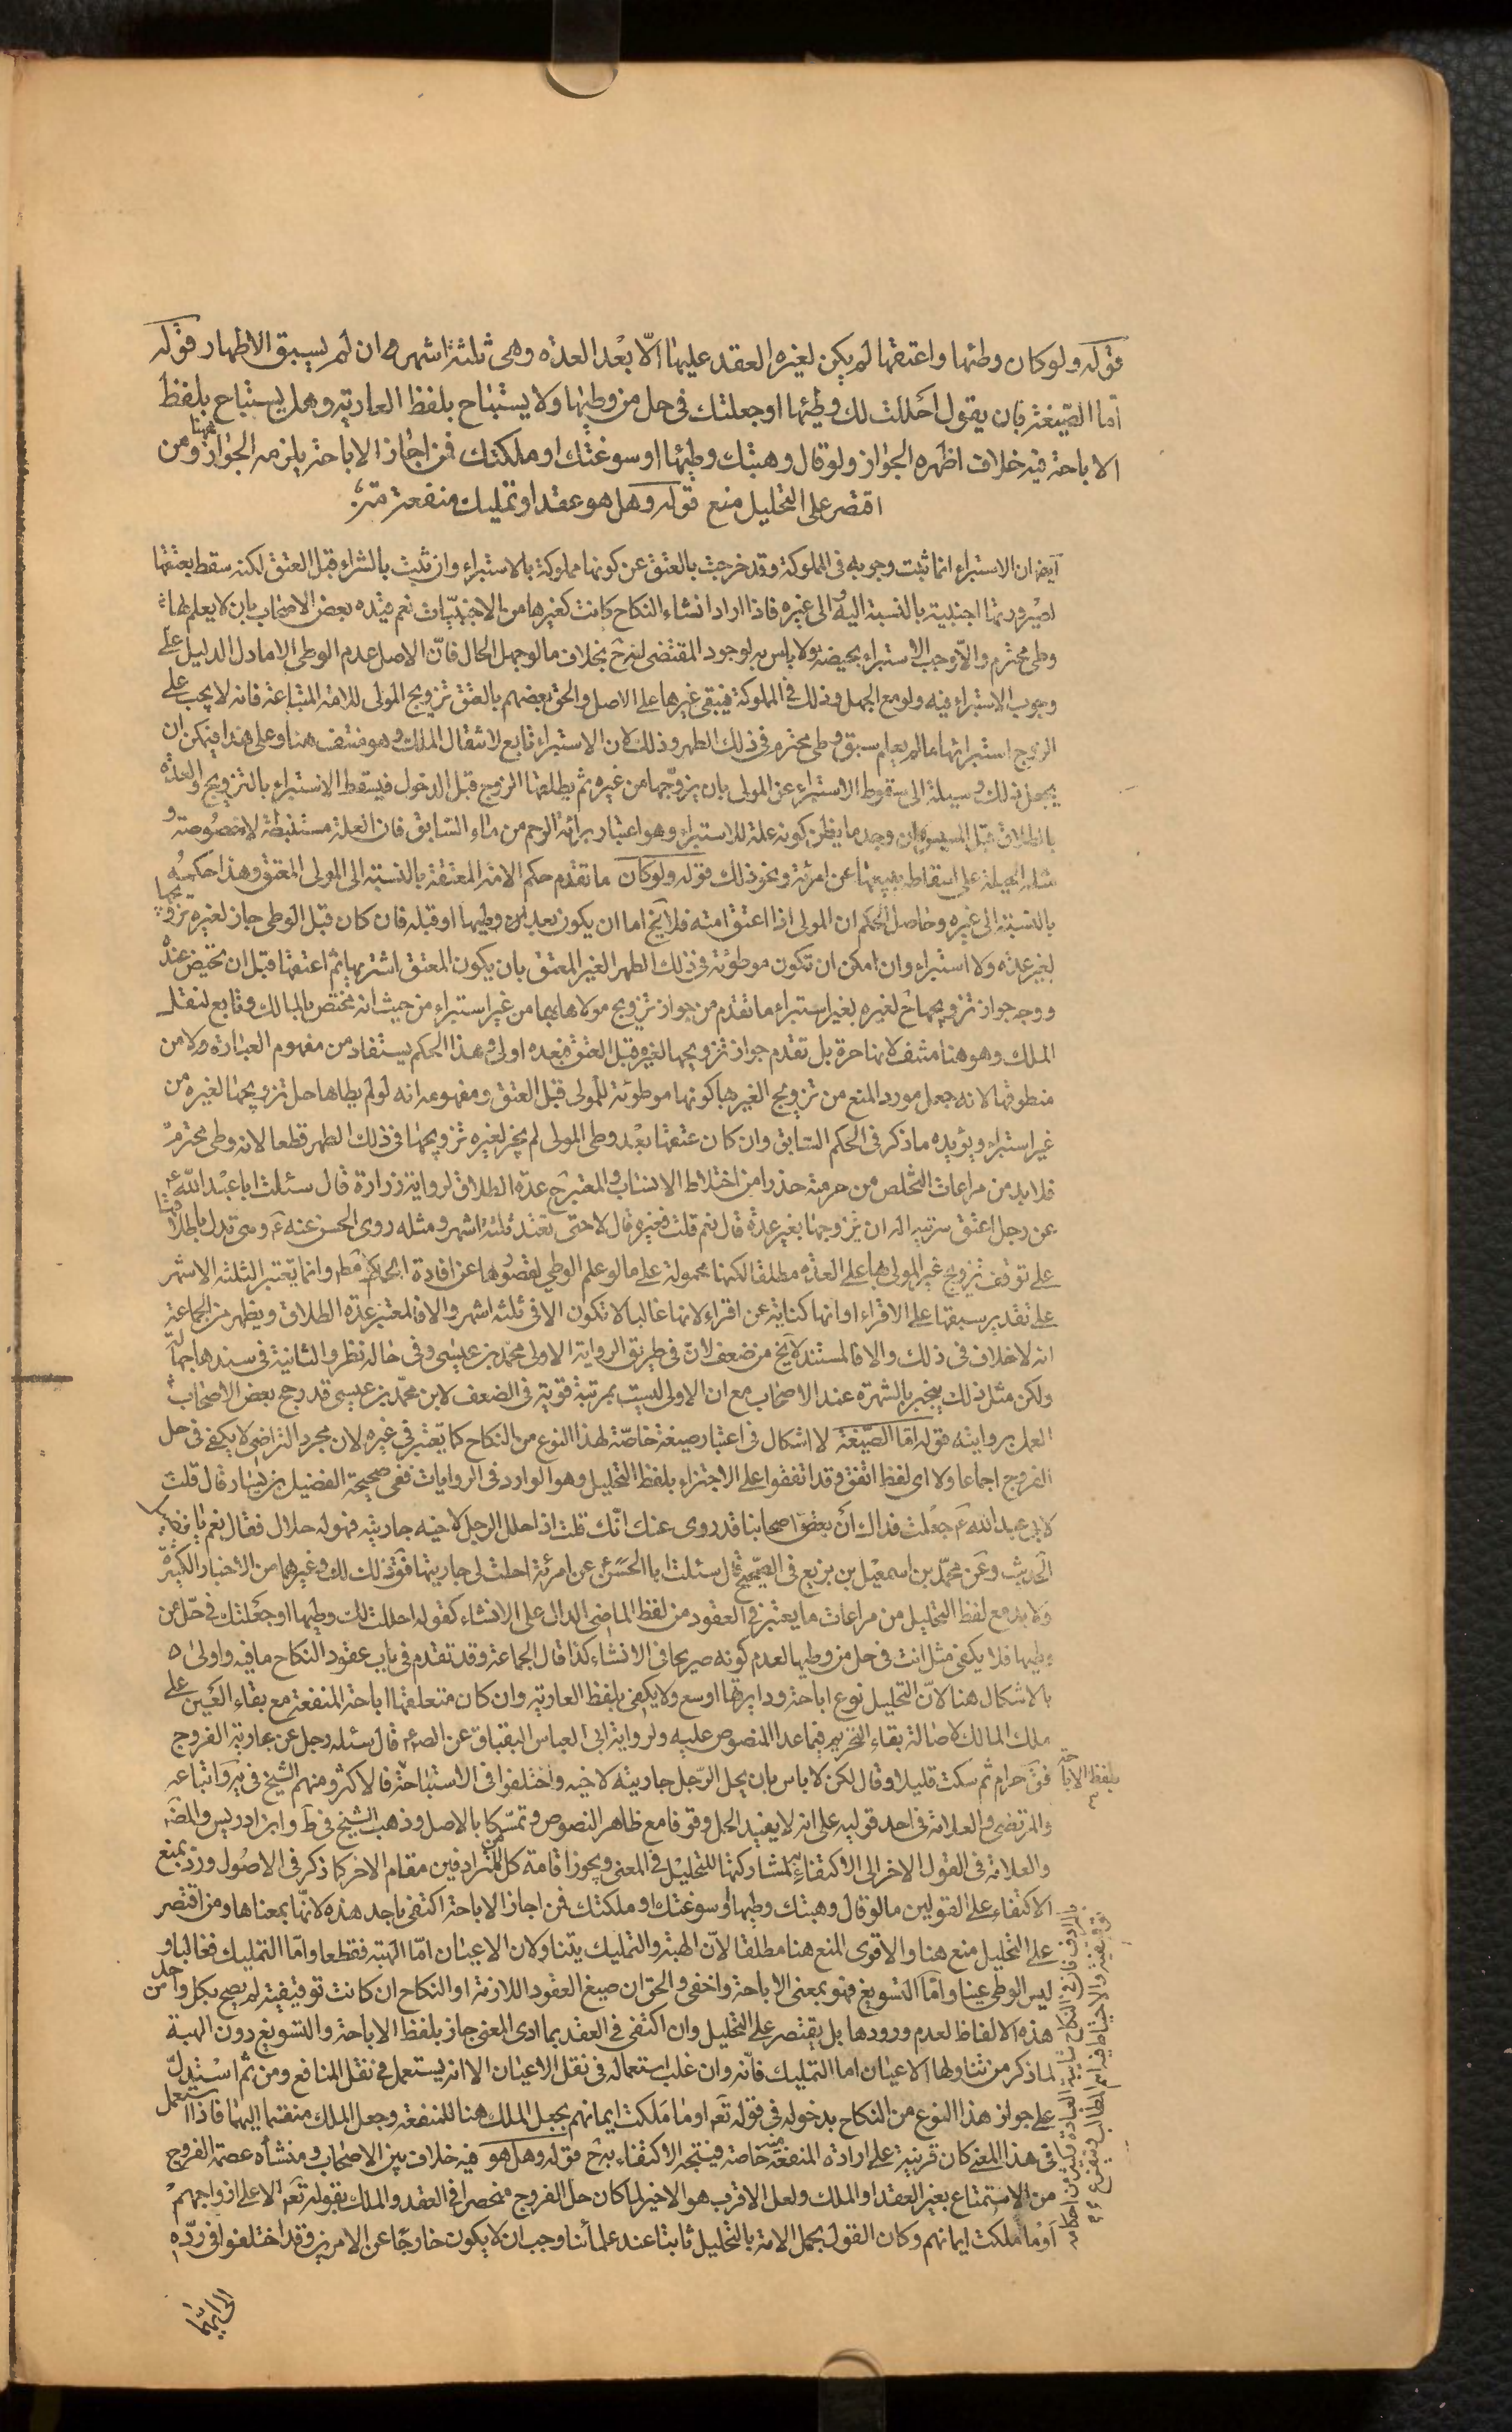 قوله ولو كان وطئها واعتقها لم يكن لغيره العقد عليها الّا بعد العدة وهى ثلثة اشهر ان لم يسبق الاطهار قوله
امّا الصّيغة فان يقول احللت لك وطئها او جعلتك فى حل من وطيها ولا يستباح بلفظ العارية وهل يستباح بلفظ
الاباحة فيه خلاف اظهره الجواز ولو قال وهبتك وطيها او سوغتك او ملكتك فمن اجاز الاباحة يلزمه الجواز هنا ومن
اقتصر على التحليل منع قوله وهل هو عقد او تمليك منفعة
ايضا ان الاستبراء انما ثبت وجوبه فى المملوكة وقد خرجت بالعتق عن كونها مملوكة بالاستبراء وان ثبت بالشراء قبل العتق لكنه سقط بعتقها
لصيرورتها اجنبية بالنسبة اليه والى غيره فاذا اراد انشاء النكاح كانت كغيرها من الاجنبيّات نعم قيّده بعض الاصحاب بان لا يعلم لها
وطى محترم والّا وجب الاستبراء بحيضة ولا باس به لوجود المقتضى له ح بخلاف ما لو جهل الحال فانّ الاصل عدم الوطى الا ما دل الدليل على
وجوب الاستبراء فيه ولو مع الجهل وذلك فى المملوكة فيبقى غيرها على الاصل والحق بعضهم بالعتق تزويج المولى للامة المبتاعة فانه لا يجب على
الزوج استبرائها ما لم يعلم سبق وطى محترم فى ذلك الطهر وذلك لان الاستبراء تابع لانتقال الملك وهو منتف هنا وعلى هذا فيمكن ان
يجعل ذلك وسيلة الى سقوط الاستبراء عن المولى بان يزوّجها من غيره ثم يطلقها الزوج قبل الدخول فيسقط الاستبراء بالتزويج والعدة
بالطلاق قبل المسيس وان وجد ما يظن كونه علة للاستبراء وهو اعتبار برائة الرحم من ماء السّابق فان العلة مستنبطة لا منصوصة و
مثله الحيلة على اسقاطه ببيعها من امرئة ونحو ذلك قوله ولو كان ما تقدم حكم الامة المعتقة بالنسبة الى المولى المعتق وهذا حكمها
بالنسبة الى غيره وحاصل الحكم ان المولى اذا اعتق امته فلا يخ اما ان يكون بعد ان وطيها او قبله فان كان قبل الوطى جاز لغيره تزويجها
بغير عدة ولا استبراء وان امكن ان تكون موطوئة فى ذلك الطهر لغير المعتق بان يكون المعتق اشتريها ثم اعتقها قبل ان تحيض عنده
ووجه جواز تزويجها ح لغيره بغير استبراء ما تقدم من جواز تزويج مولاها بها من غير استبراء من حيث انه مختص بالمالك وتابع لنقل
الملك وهو هنا منتف لانها حرة بل تقدم جواز تزويجها لغيره قبل العتق فبعده اولى وهذا الحكم يستفاد من مفهوم العبارة ولا من
منطوقها لانه جعل مورد المنع من تزويج الغير بها كونها موطوئة للمولى قبل العتق ومفهومه انه لو لم يطاها حل تزويجها لغيره من
غير استبراء ويؤيده ما ذكر فى الحكم السّابق وان كان عتقها بعد وطى المولى لم يجز لغيره تزويجها فى ذلك الطهر قطعا لانه وطى محترم
فلا بد من مراعات التخلص من حرمته حذرا من اختلاط الانساب والمعتبر ح عدة الطلاق لرواية زرارة قال سئلت ابا عبد الله ع
عن رجل اعتق سرّية اله ان يتزوجها بغير عدة قال نعم قلت فغيره قال لا حتى تعتد ثلثة اشهر ومثله روى الحسن عنه ع وهى تدل باطلاقها
على توقف تزويج غير المولى بها على العدة مطلقا لكنها محمولة على ما لو علم الوطى لقصورها عن افادة الحكم مط وانما يعتبر الثلثة الاشهر
على تقدير سبقها على الاقراء او انها كناية عن اقراء لانها غالبا لا تكون الا فى ثلثة اشهر والا فالمعتبر عدة الطلاق ويظهر من الجماعة
انه لا خلاف فى ذلك والا فالمستند لا يخ من ضعف لانّ فى طريق الرواية الاولى محمّد بن عيسى وفى حاله نظر والثانية فى سندها جهالة
ولكن مثل ذلك ينجبر بالشهرة عند الاصحاب مع ان الاولى ليست بمرتبة قوية فى الضعف لان محمّد بن عيسى قد رجح بعض الاصحاب
العمل بروايته قوله امّا الصّيغة لا اشكال فى اعتبار صيغة خاصّة لهذا النوع من النكاح كما يعتبر فى غيره لان مجرد التراضى لا يكفى فى حل
الفروج اجماعا ولا اى لفظ اتفق وقد اتفقوا على الاجتزاء بلفظ التحليل وهو الوارد فى الروايات ففى صحيحة الفضيل بن يسار قال قلت
لابى عبد الله ع جعلت فداك انّ بعض اصحابنا قد روى عنك انّك قلت اذا احلل الرجل لاخيه جاريته فهو له حلال فقال نعم يا فضيل
الحديث وعن محمّد بن اسمعيل بن بزيع فى الصّحيح قال سئلت ابا الحسن ع عن امرئة احلت لى جاريتها فق ذلك لك وغيرهما من الاخبار الكثيرة
ولا بد مع لفظ التحليل من مراعات ما يعتبر فى العقود من لفظ الماضى الدال على الانشاء كقوله احللت لك وطيها او جعلتك فى حلّ من
وطيها فلا يكفى مثل انت فى حل من وطيها لعدم كونه صريحا فى الانشاء كذا قال الجماعة وقد تقدم فى باب عقود النكاح ما فيه واولى
بالاشكال هنا لانّ التحليل نوع اباحة ودايرتها اوسع ولا يكفى بلفظ العارية وان كان متعلقها اباحة المنفعة مع بقاء العين على
ملك المالك لاصالة بقاء التحريم فيما عدا المنصوص عليه ولرواية ابى العباس البقباق عن الصم قال سئله رجل عن عارية الفروج
فق حرام ثم سكت قليلا وقال لكن لا باس بان يحل الرّجل جاريته لاخيه واختلفوا فى الاستباحة بلفظ الاباحة فالاكثر ومنهم الشيخ فى ية واتباعه
والمرتضى والعلامة فى احد قوليه على انه لا يفيد الحل وقوفا مع ظاهر النصوص وتمسّكا بالاصل وذهب الشيخ فى ط وابن ادريس والمصّ
والعلامة فى القول الاخر الى الاكتفاء بها لمشاركتها للتحليل فى المعنى ويجوز اقامة كل من المترادفين مقام الاخر كما ذكر فى الاصول ورد بمنع
الاكتفاء على القولين ما لو قال وهبتك وطيها او سوغتك او ملكتك فمن اجاز الاباحة اكتفى باحد هذه لانّها بمعناها ومن اقتصر
على التحليل منع هنا والاقوى المنع هنا مطلقا لانّ الهبة والتمليك يتناولان الاعيان امّا الهبة فقطعا وامّا التمليك فغالبا و
ليس الوطى عينا وامّا التسويغ فهو بمعنى الاباحة واخفى والحق ان صيغ العقود اللازمة او النكاح ان كانت توقيفية لم يصح بكل واحد من
هذه الالفاظ لعدم ورودها بل يقتصر على التحليل وان اكتفى فى العقد بما ادى المعنى جاز بلفظ الاباحة والتسويغ دون الهبة
لما ذكر من تناولها الاعيان اما التمليك فانّه وان غلب استعماله فى نقل الاعيان الا انه يستعمل فى نقل المنافع ومن ثم استدلّ
على جواز هذا النوع من النكاح بدخوله فى قوله تعم او ما ملكت ايمانهم بجعل الملك هنا للمنفعة وجعل الملك منقسما اليهما فاذا استعمل
فى هذا المعنى كان قرينة على ارادة المنفعة منه خاصة فيتجه الاكتفاء به ح قوله وهل هو فيه خلاف بين الاصحاب ومنشأه عصمة الفروج
من الاستمتاع بغير العقد او الملك ولعل الاقرب هو الاخير لما كان حل الفروج منحصرا فى العقد والملك بقوله تعم الا على ازواجهم
او ما ملكت ايمانهم وكان القول بحل الامة بالتحليل ثابتا عند علمائنا وجب ان لا يكون خارجا عن الامرين وقد اختلفوا فى ردّه
الى ايّهما